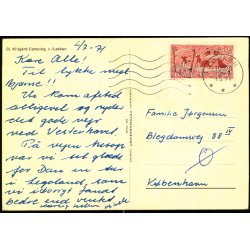 Gl. Klitgård Camping, v./Løkken
4/7-71
Kære Alle!
Til lykke med
hjorne!! Vi kom afsted
alligevel og nyder
det gode vejr ved
Vesterhavet.
På vejen herop
var vi så glade
for Dem in der
i Legoland, som
vi iøvrigt fandt
bedre end ventet
Familie Jørgensen
Blegdamsvej 28 IV
Ø
København